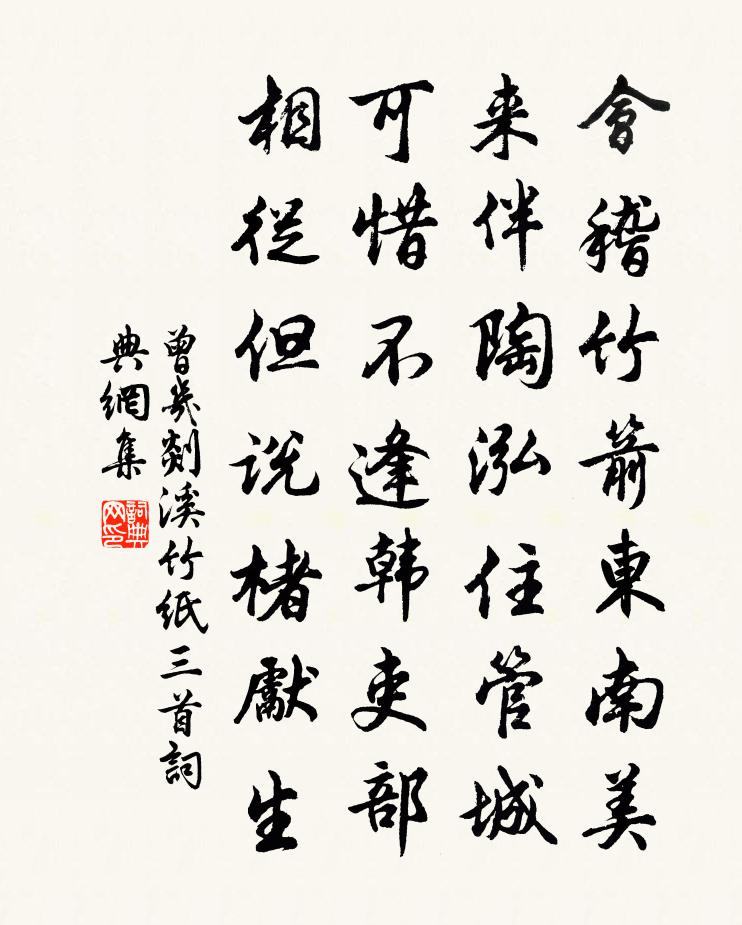 會稽竹箭東南美
来伴陶泓住管城
可惜不逢韩吏部
相從但说楮獻生
曾幾剡溪竹紙三首詞
典網集
詞典网印